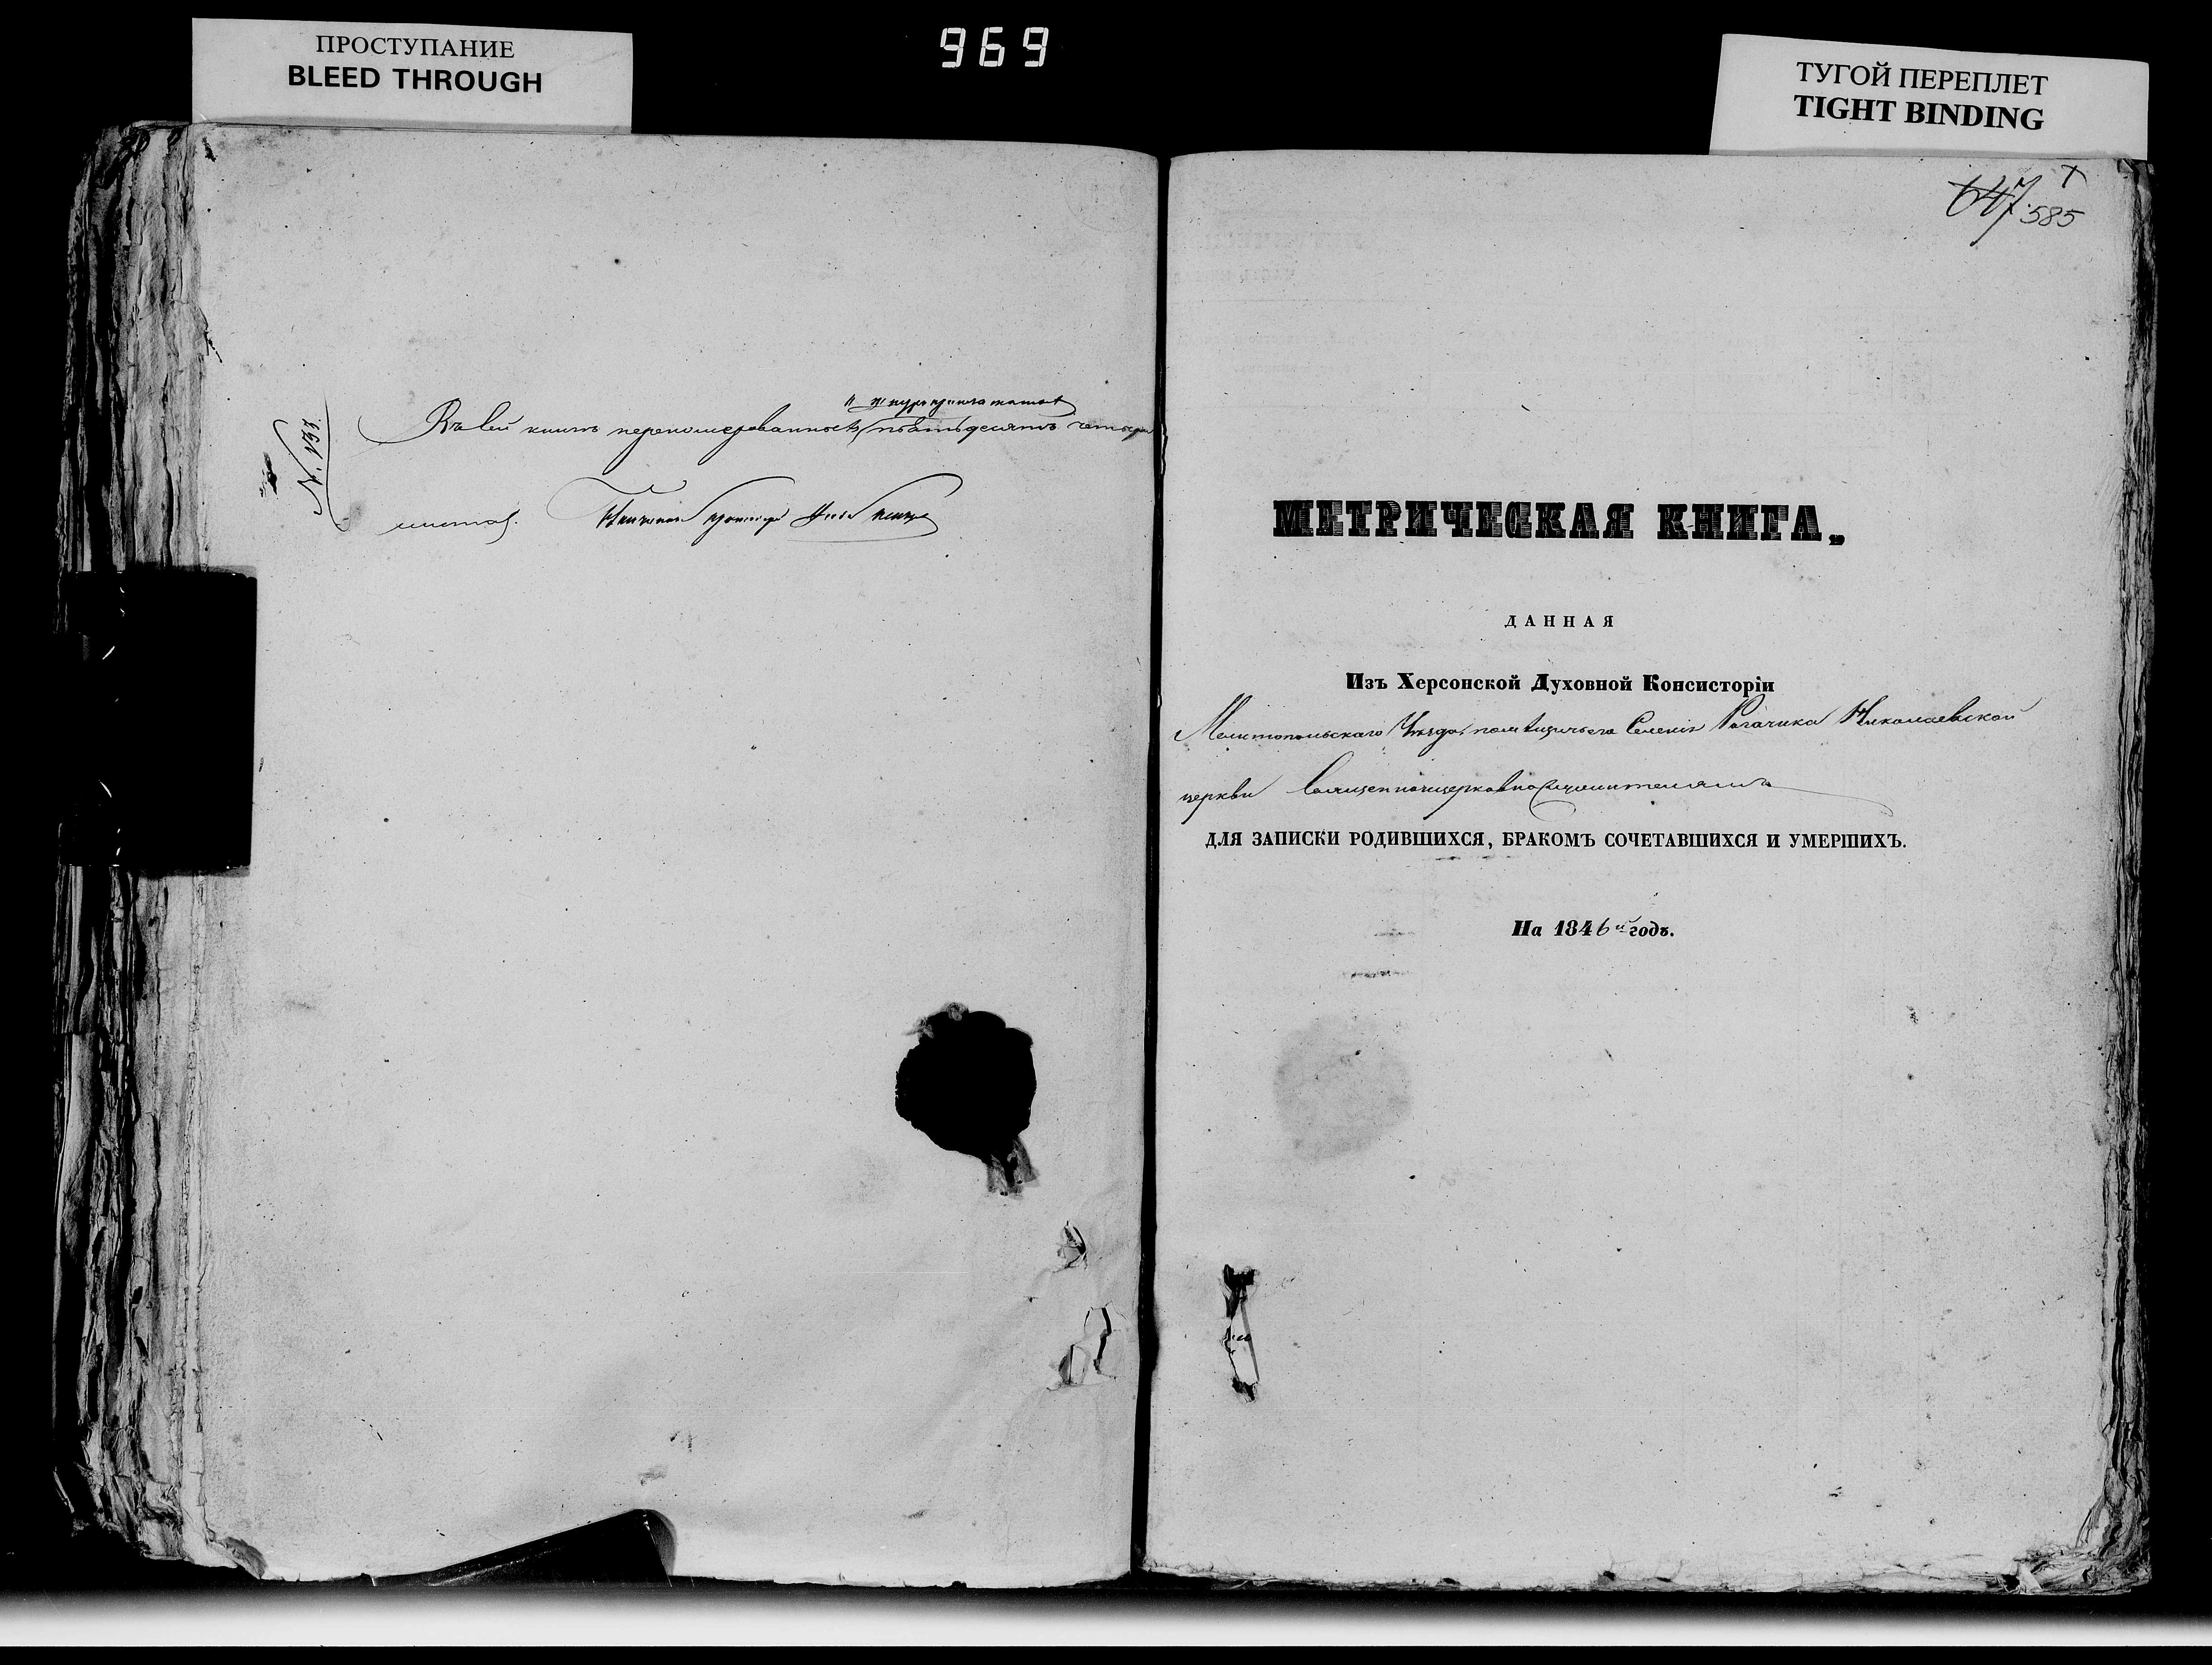 ПРОСТУПАНИЕ
BLEED THROUGH
969
ТУГОЙ ПЕРЕПЛЕТ
TIGHT BINDING
647 585
N. 133.
и шнуропечатаной
Въ сей книгѣ перенумерованныхъ пятьдесятъ четыре
листа.
МЕТРИЧЕСКАЯ КНИГА,
ДАННАЯ
Изъ Херсонской Духовной Консисторіи
Мелитопольскаго Уѣзда, помѣщичьего Селенія Рогачика Николаевской
церкви Священноцерковнослужителямъ
ДЛЯ ЗАПИСКИ РОДИВШИХСЯ, БРАКОМЪ СОЧЕТАВШИХСЯ И УМЕРШИХЪ.
На 1846й годъ.